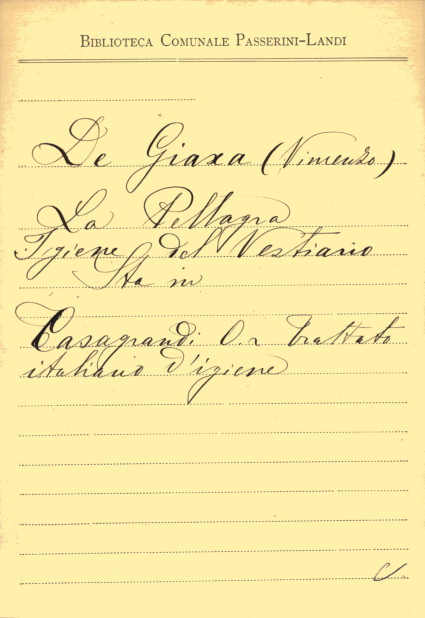 BIBLIOTECA COMUNALE PASSERINI-LANDI
De Giaxa (Vincenzo)
La Pellagra
Igiene del Vestiario
Sta in
Casagrandi O. Trattato
italiano d'igiene